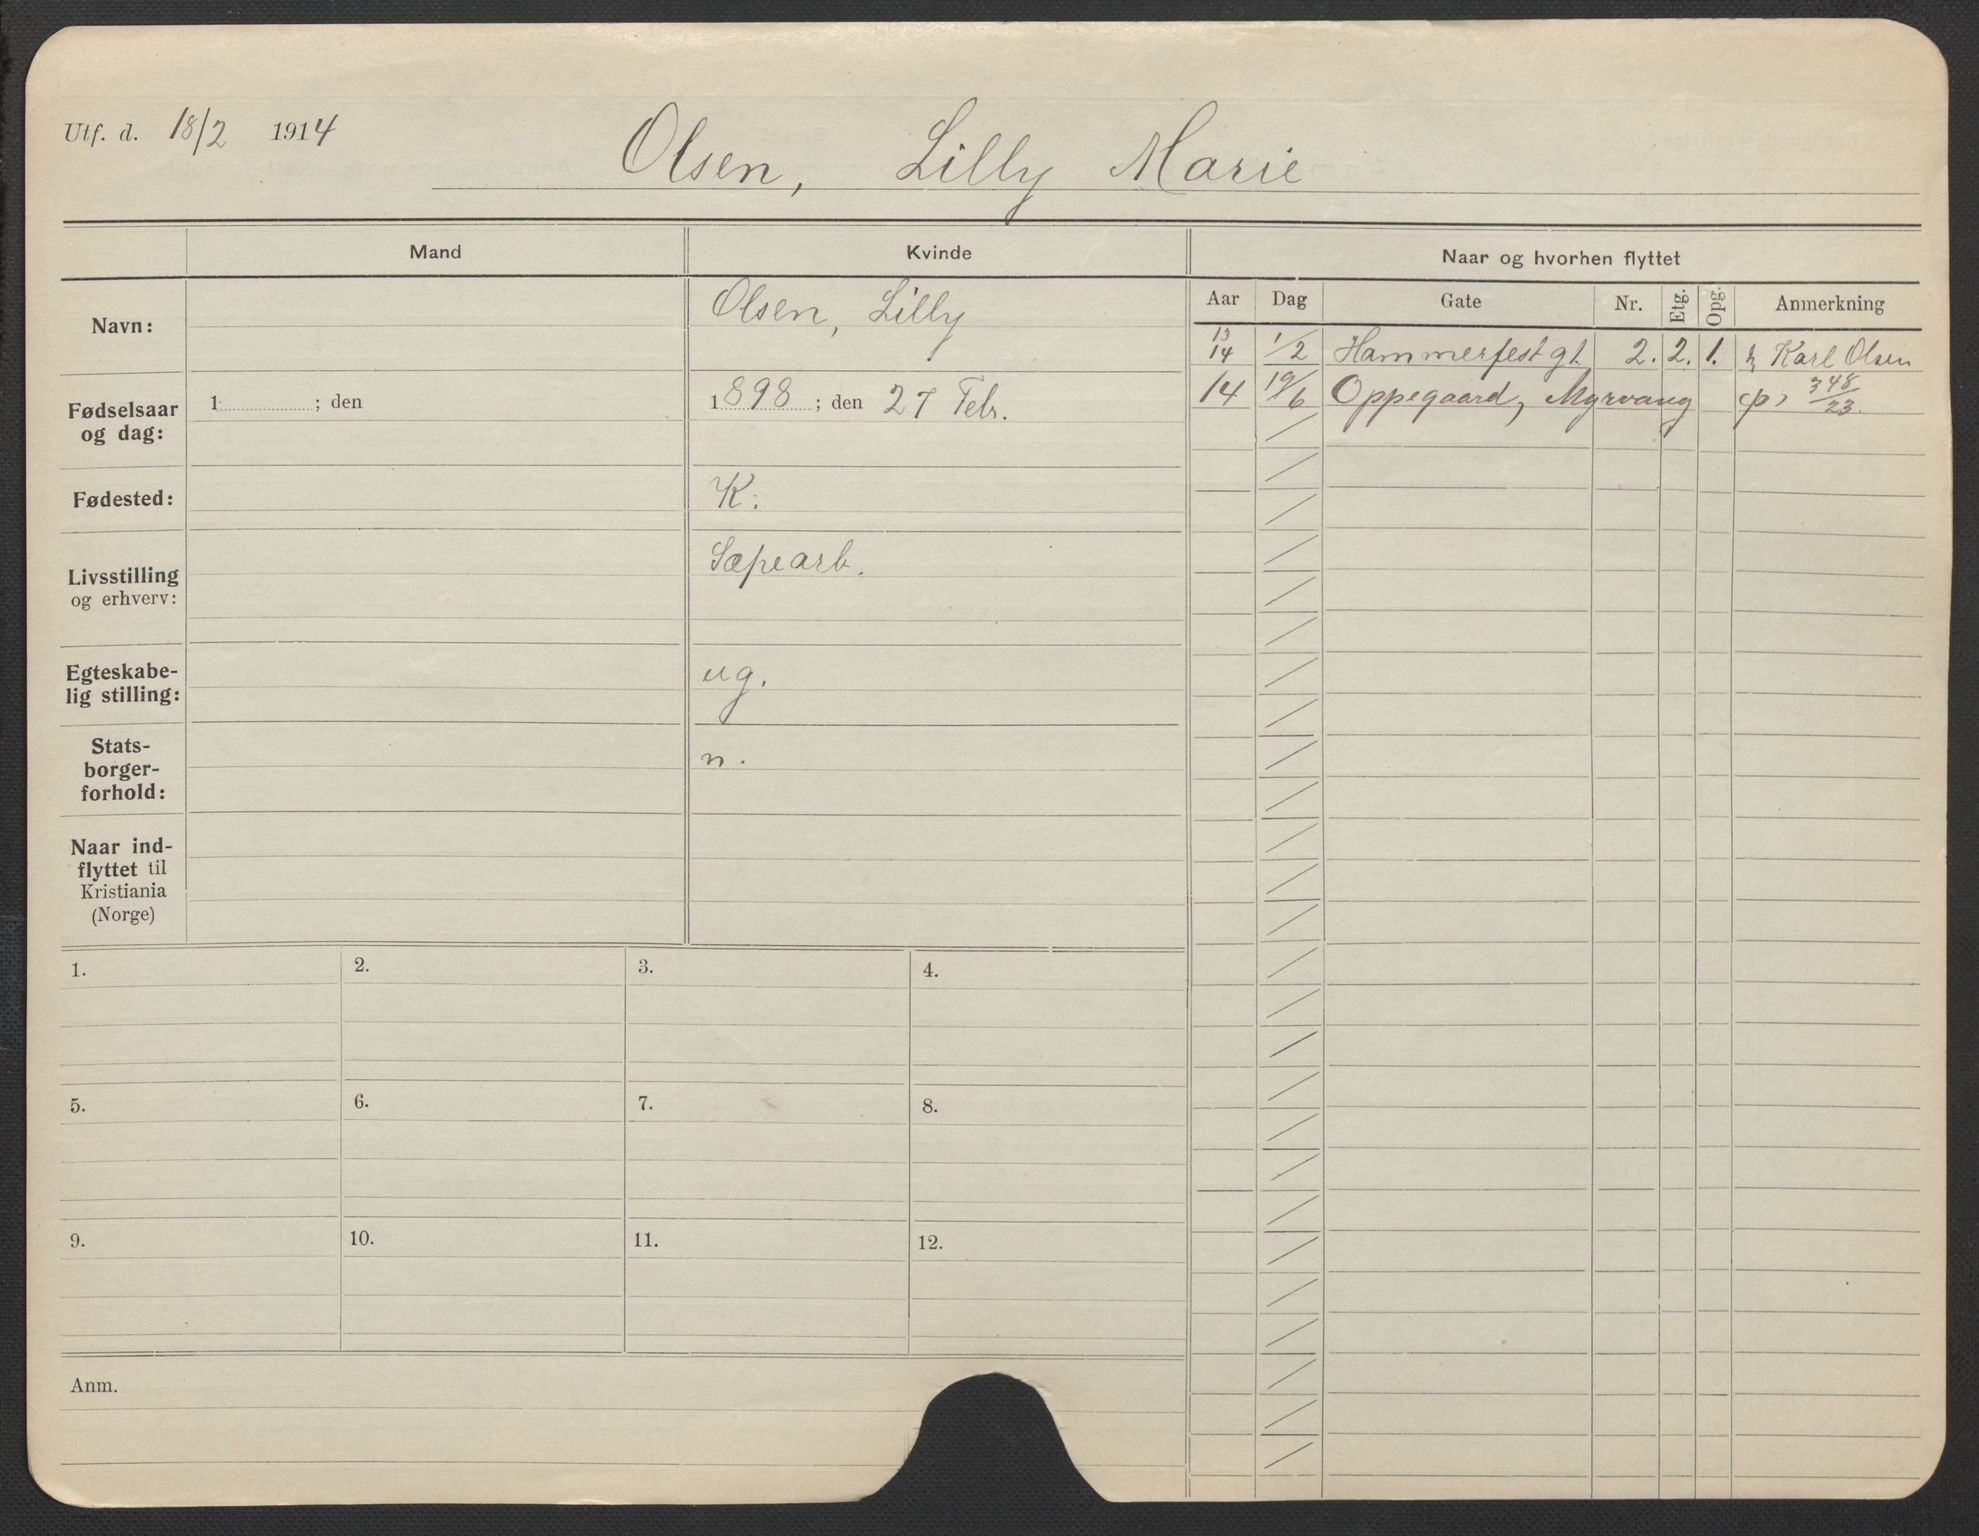 Utf. d. 18/2 1914
Olsen, Lilly Marie
Mand Kvinde Naar og hvorhen flyttet
Aar Dag Gate Nr. Etg. Opg. Anmerkning
Navn: Olsen, Lilly
13
14 1/2 Hammerfestgt. 2. 2. 1. Karl Olsen
14 19/6 Oppegaard, Myrvang 348/23.
Fødselsaar
og dag: 1 ; den 1898 ; den 27 Febr.
Fødested: K.
Livsstilling
og erhverv: Sæpearb.
Egteskabe-
lig stilling: ug.
Stats-
borger-
forhold: n.
Naar ind-
flyttet til
Kristiania
(Norge)
1. 2. 3. 4.
5. 6. 7. 8.
9. 10. 11. 12.
Anm.